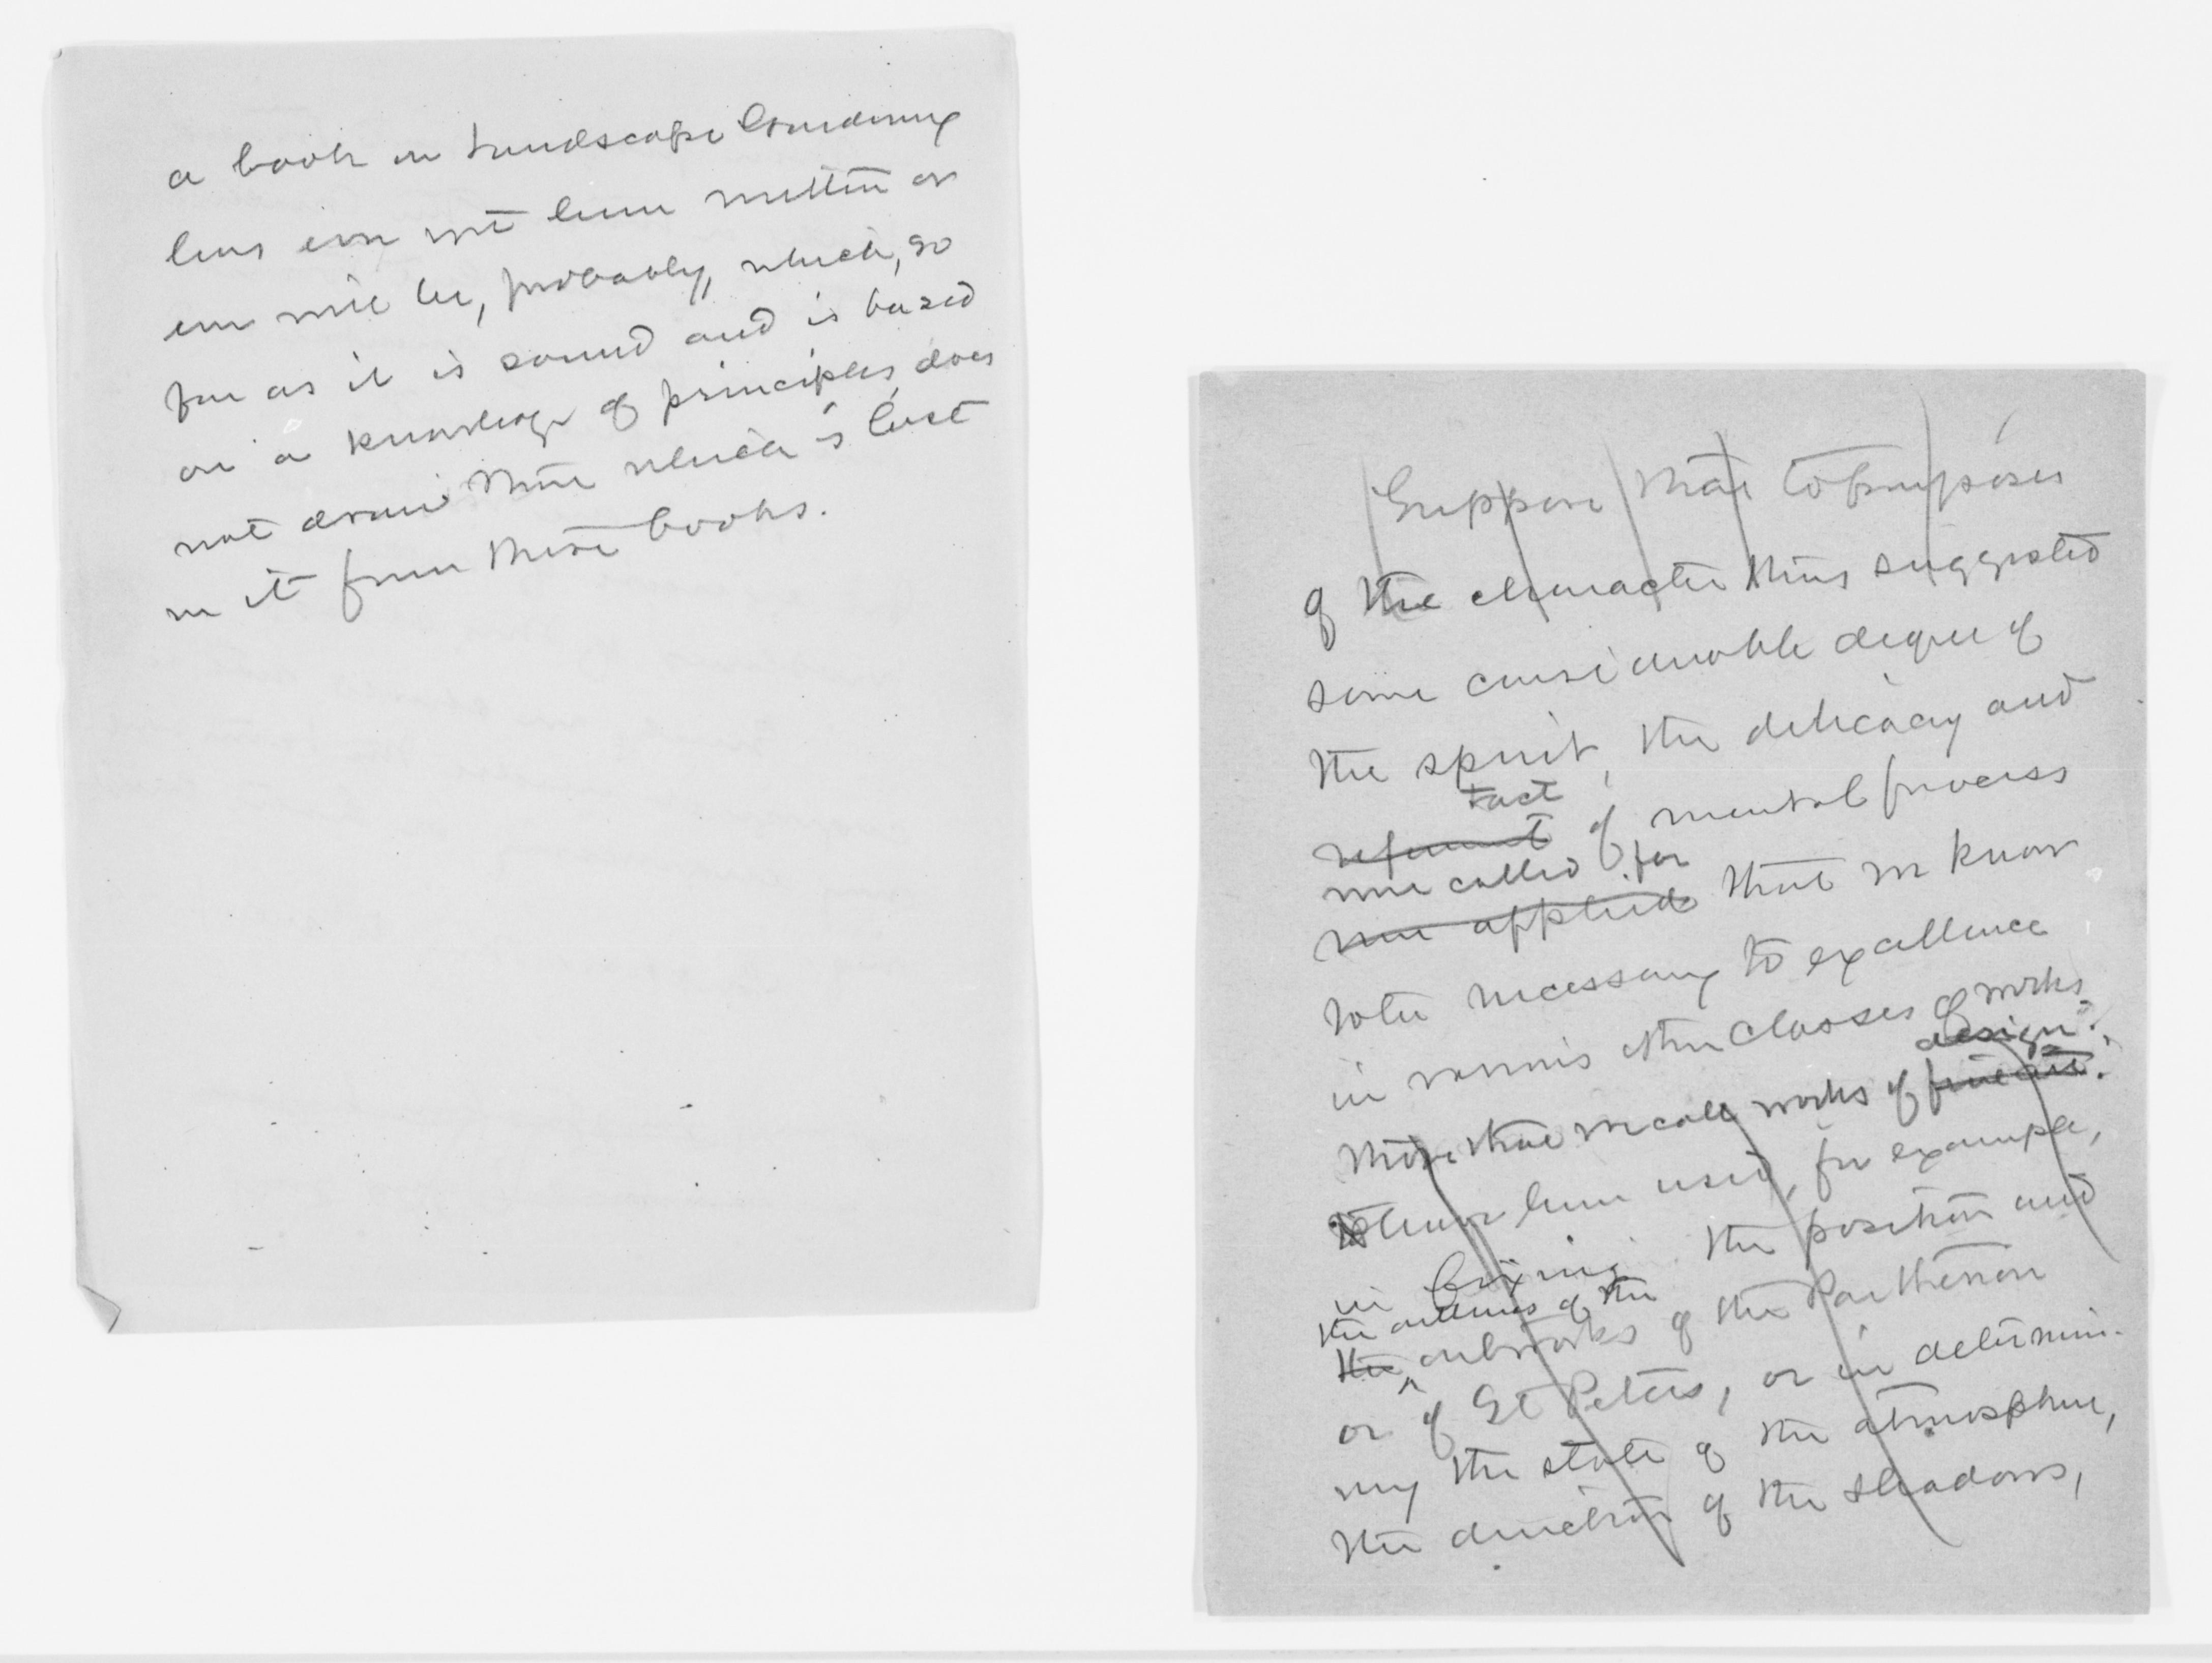 a book on Landscape Gardening
has ever yet been written or
ever will be, probably, which, so
far as it is sound and is based
on a knowledge of principles, does
not draw that which is best
in it from these books.
Suppose that to purposes
of the character thus suggested
some considerable degree of
the spirit, the delicacy and
tact
refinemt of mental process
were called for
were applied that we know
to be necessary to excellence
in various other classes of works.
design.
those that we call works of fine art.
to have been used, for example,
in fixing the position and
the outlines of the
the outworks of the Parthenon
or of St Peters, or in determin-
ing the state of the atmosphere,
the direction of the shadows,